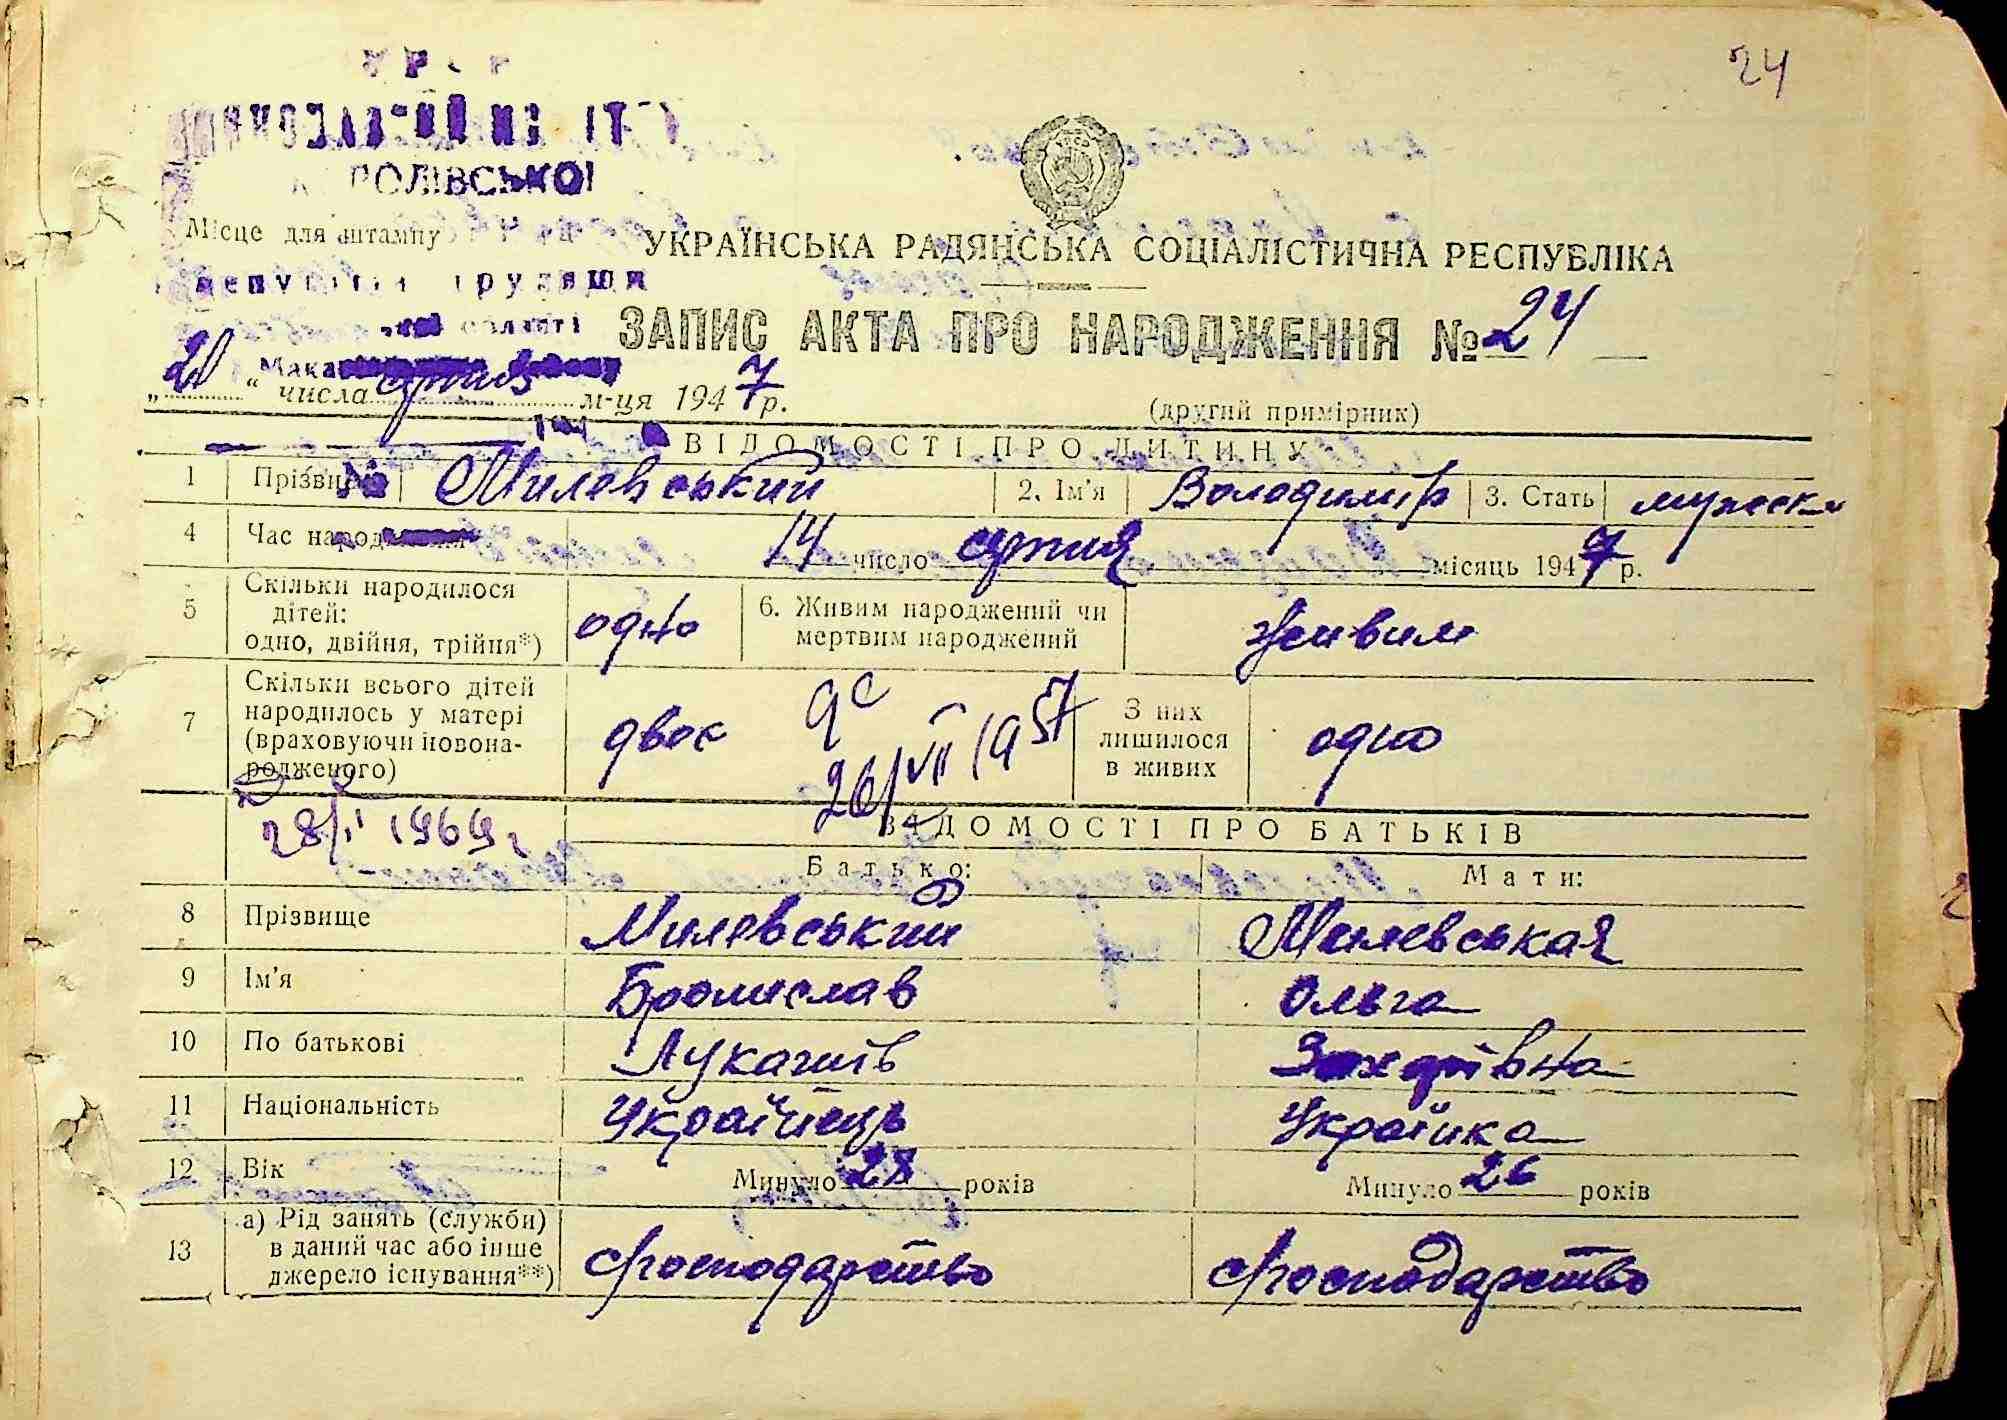 24
РОЛІВСЬКОЇ
Місце для штампу
УКРАЇНСЬКА РАДЯНСЬКА СОЦІАЛІСТИЧНА РЕСПУБЛІКА
ЗАПИС АКТА ПРО НАРОДЖЕННЯ № 24
„20“ числа серпня м-ця 1947 р.
(другий примірник)
ВІДОМОСТІ ПРО ДИТИНУ
1 Прізвище Милевський 2. Ім'я Володимір 3. Стать мужеск
4 Час народження 14 число серпня місяць 1947 р.
5 Скільки народилося дітей: одно, двійня, трійня*) одно 6. Живим народжений чи мертвим народжений живим
7 Скільки всього дітей народилось у матері (враховуючи новонародженого) двоє З них лишилося в живих одно
26/VII 1957
28/II 1969 г
ВІДОМОСТІ ПРО БАТЬКІВ
Батько: Мати:
8 Прізвище Милевський Милевськая
9 Ім'я Броніслав Ольга
10 По батькові Лукашів Захарівна
11 Національність Українець Українка
12 Вік Минуло 28 років Минуло 26 років
13 а) Рід занять (служби) в даний час або інше джерело існування**) господарство господарство